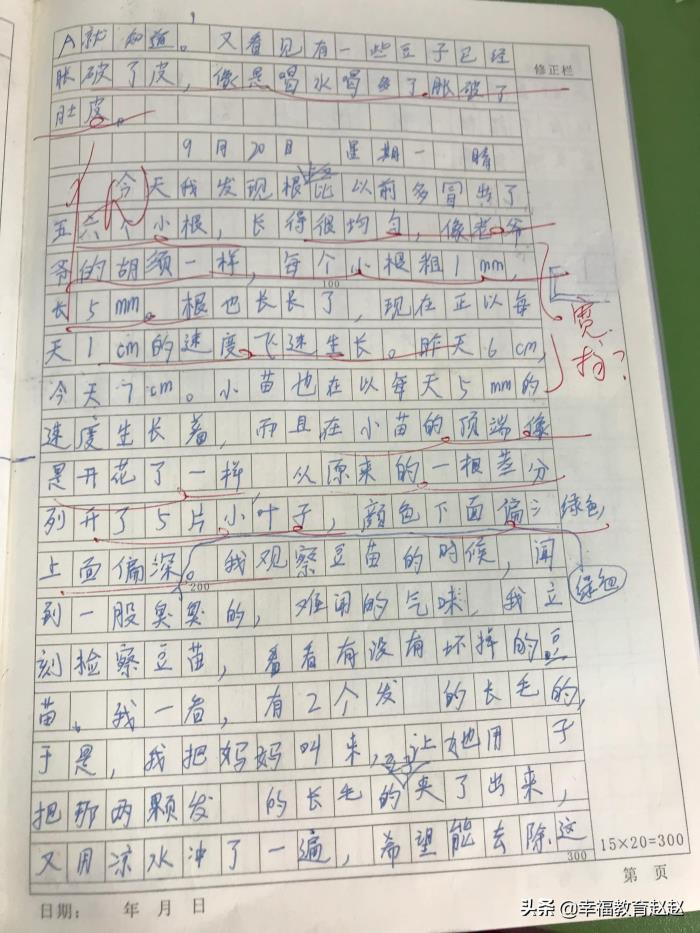 A就知道。又看见有一些豆子已经
修正栏
胀破了皮，像是喝水喝多了胀破了
肚皮。
9月20日 星期一 晴
今天我发现根比以前多冒出了
五六个小根，长得很均匀，像老爷
爷的胡须一样，每个小根粗1mm，
100
长5mm。根也长长了，现在正以每
宽扚？
天1cm的速度飞速生长。昨天6cm，
今天7cm。小苗也在以每天5mm的
速度生长着，而且在小苗的顶端像
是开花了一样 从原来的一根茎分
列开了5片小叶子，颜色下面偏 绿色，
上面偏深。我观察豆苗的时候，闻
绿色
200
到一股臭臭的，难闻的气味，我立
刻检察豆苗，看看有没有坏掉的豆
苗。我一看，有2个发 的长毛的，
于是，我把妈妈叫来，让她用 子
豆子
把那两颗发 的长毛的夹了出来，
又用凉水冲了一遍，希望能去除这
300
15×20=300
第 页
日期： 年 月 日
头条 @幸福教育赵赵